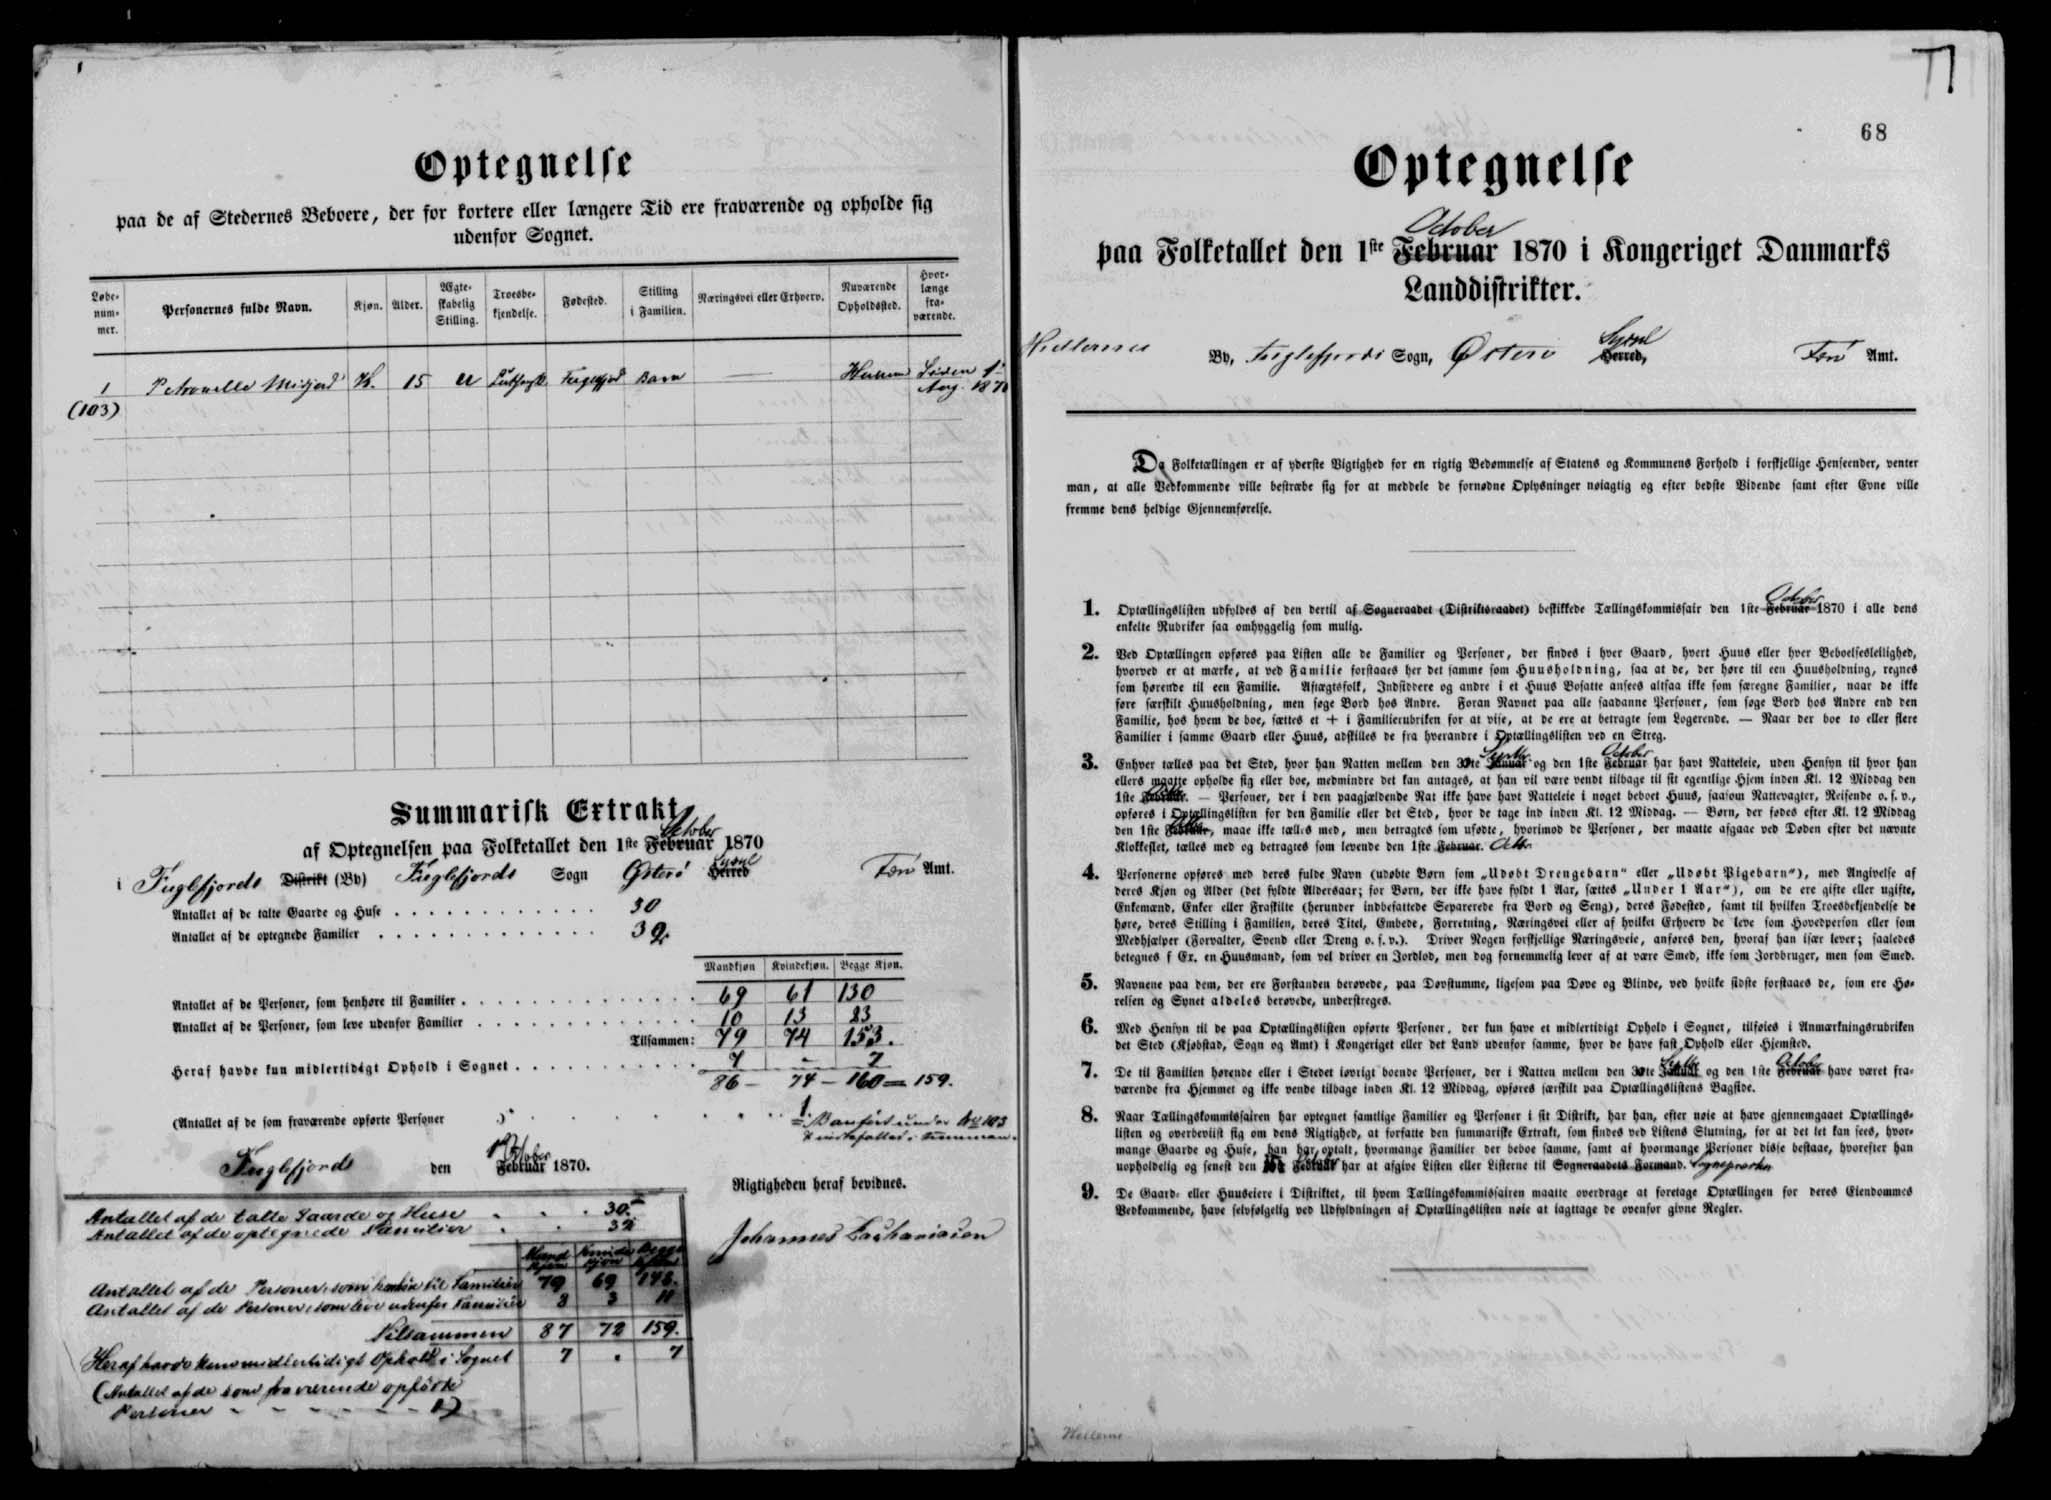 Optegnelse
paa de af Stedernes Beboere, der for kortere eller længere Tid ere fraværende og opholde sig
udenfor Sognet.
Løbe-nummer. Personernes fulde Navn. Kjøn. Alder. Ægteskabelig Stilling. Troesbekjendelse. Fødested. Stilling i Familien. Næringsvei eller Erhverv. Nuværende Opholdssted. Hvorlænge fraværende.
1 Petronelle K. 15 Barn — Siden 1
(103) Aug. 1870
Summarisk Extrakt
October
af Optegnelsen paa Folketallet den 1ste Februar 1870
i Fuglefjords Distrikt (By) Fuglefjords Sogn Østerø Syssel Herred Færø Amt.
Antallet af de talte Gaarde og Huse 30
Antallet af de optegnede Familier 32
Mandkjøn Kvindekjøn. Begge Kjøn.
Antallet af de Personer, som henhøre til Familier 69 61 130
Antallet af de Personer, som leve udenfor Familier 10 13 23
Tilsammen: 79 74 153.
Heraf havde kun midlertidigt Ophold i Sognet 7 – 7
86 – 74 – 160 = 159.
(Antallet af de som fraværende opførte Personer 1.
Fuglefjords den October Februar 1870.
Rigtigheden heraf bevidnes.
Johannes Zachariasen
Antallet af de talte Gaarde og Huse 30.
Antallet af de optegnede Familier 32
Mand kjøn Kvinde kjøn Begge
Antallet af de Personer, som henhøre til Familier 79 69 148.
Antallet af de Personer, som leve udenfor Familier 8 3 11
Tilsammen 87 72 159.
Heraf havde kun midlertidigt Ophold i Sognet 7 . 7
(Antallet af de som fraværende opførte
Personer 1)
68
Optegnelse
October
paa Folketallet den 1ste Februar 1870 i Kongeriget Danmarks
Landdistrikter.
By, Fuglefjords Sogn, Østerø Syssel Herred, Færø Amt.
Da Folketællingen er af yderste Vigtighed for en rigtig Bedømmelse af Statens og Kommunens Forhold i forskjellige Henseender, venter
man, at alle Vedkommende ville bestræbe sig for at meddele de fornødne Oplysninger nøiagtig og efter bedste Vidende samt efter Evne ville
fremme dens heldige Gjennemførelse.
1. Optællingslisten udfyldes af den dertil af Sogneraadet (Distriktsraadet) beskikkede Tællingskommissair den 1ste Februar October 1870 i alle dens
enkelte Rubriker saa omhyggelig som mulig.
2. Ved Optællingen opføres paa Listen alle de Familier og Personer, der findes i hver Gaard, hvert Huus eller hver Beboelsesleilighed,
hvorved er at mærke, at ved Familie forstaaes her det samme som Huusholdning, saa at de, der høre til een Huusholdning, regnes
som hørende til een Familie. Aftægtsfolk, Indsiddere og andre i et Huus Bosatte ansees altsaa ikke som særegne Familier, naar de ikke
føre særskilt Huusholdning, men søge Bord hos Andre. Foran Navnet paa alle saadanne Personer, som søge Bord hos Andre end den
Familie, hos hvem de boe, sættes et + i Familierubriken for at vise, at de ere at betragte som Logerende. — Naar der boe to eller flere
Familier i samme Gaard eller Huus, adskilles de fra hverandre i Optællingslisten ved en Streg.
3. Enhver tælles paa det Sted, hvor han Natten mellem den 30te Septbr Januar og den 1ste October Februar har havt Natteleie, uden Hensyn til hvor han
ellers maatte opholde sig eller boe, medmindre det kan antages, at han vil være vendt tilbage til sit egentlige Hjem inden Kl. 12 Middag den
1ste Octbr Februar. — Personer, der i den paagjældende Nat ikke have havt Natteleie i noget beboet Huus, saasom Nattevagter, Reisende o. s. v.,
opføres i Optællingslisten for den Familie eller det Sted, hvor de tage ind inden Kl. 12 Middag. — Børn, der fødes efter Kl. 12 Middag
den 1ste Octbr Februar, maae ikke tælles med, men betragtes som ufødte, hvorimod de Personer, der maatte afgaae ved Døden efter det nævnte
Klokkeslet, tælles med og betragtes som levende den 1ste Februar. Octbr.
4. Personerne opføres med deres fulde Navn (udøbte Børn som „Udøbt Drengebarn“ eller „Udøbt Pigebarn“), med Angivelse af
deres Kjøn og Alder (det fyldte Aldersaar; for Børn, der ikke have fyldt 1 Aar, sættes „Under 1 Aar“), om de ere gifte eller ugifte,
Enkemænd, Enker eller Fraskilte (herunder indbefattede Separerede fra Bord og Seng), deres Fødested, samt til hvilken Troesbekjendelse de
høre, deres Stilling i Familien, deres Titel, Embede, Forretning, Næringsvei eller af hvilket Erhverv de leve som Hovedperson eller som
Medhjælper (Forvalter, Svend eller Dreng o. s. v.). Driver Nogen forskjellige Næringsveie, anføres den, hvoraf han især lever; saaledes
betegnes f Ex. en Huusmand, som vel driver en Jordlod, men dog fornemmelig lever af at være Smed, ikke som Jordbruger, men som Smed.
5. Navnene paa dem, der ere Forstanden berøvede, paa Døvstumme, ligesom paa Døve og Blinde, ved hvilke sidste forstaaes de, som ere Hø-
relsen og Synet aldeles berøvede, understreges.
6. Med Hensyn til de paa Optællingslisten opførte Personer, der kun have et midlertidigt Ophold i Sognet, tilføies i Anmærkningsrubriken
det Sted (Kjøbstad, Sogn og Amt) i Kongeriget eller det Land udenfor samme, hvor de have fast Ophold eller Hjemsted.
7. De til Familien hørende eller i Stedet iøvrigt boende Personer, der i Natten mellem den 30te Septbr Januar og den 1ste October Februar have været fra-
værende fra Hjemmet og ikke vende tilbage inden Kl. 12 Middag, opføres særskilt paa Optællingslistens Bagside.
8. Naar Tællingskommissairen har optegnet samtlige Familier og Personer i sit Distrikt, har han, efter nøie at have gjennemgaaet Optællings-
listen og overbeviist sig om dens Rigtighed, at forfatte den summariske Extrakt, som findes ved Listens Slutning, for at det let kan sees, hvor-
mange Gaarde og Huse, han har optalt, hvormange Familier der beboe samme, samt af hvormange Personer disse bestaae, hvorefter han
uopholdelig og senest den Februar har at afgive Listen eller Listerne til Sogneraadets Formand. Sognepræsten
9. De Gaard- eller Huuseiere i Distriktet, til hvem Tællingskommissairen maatte overdrage at foretage Optællingen for deres Eiendommes
Vedkommende, have selvfølgelig ved Udfyldningen af Optællingslisten nøie at iagttage de ovenfor givne Regler.